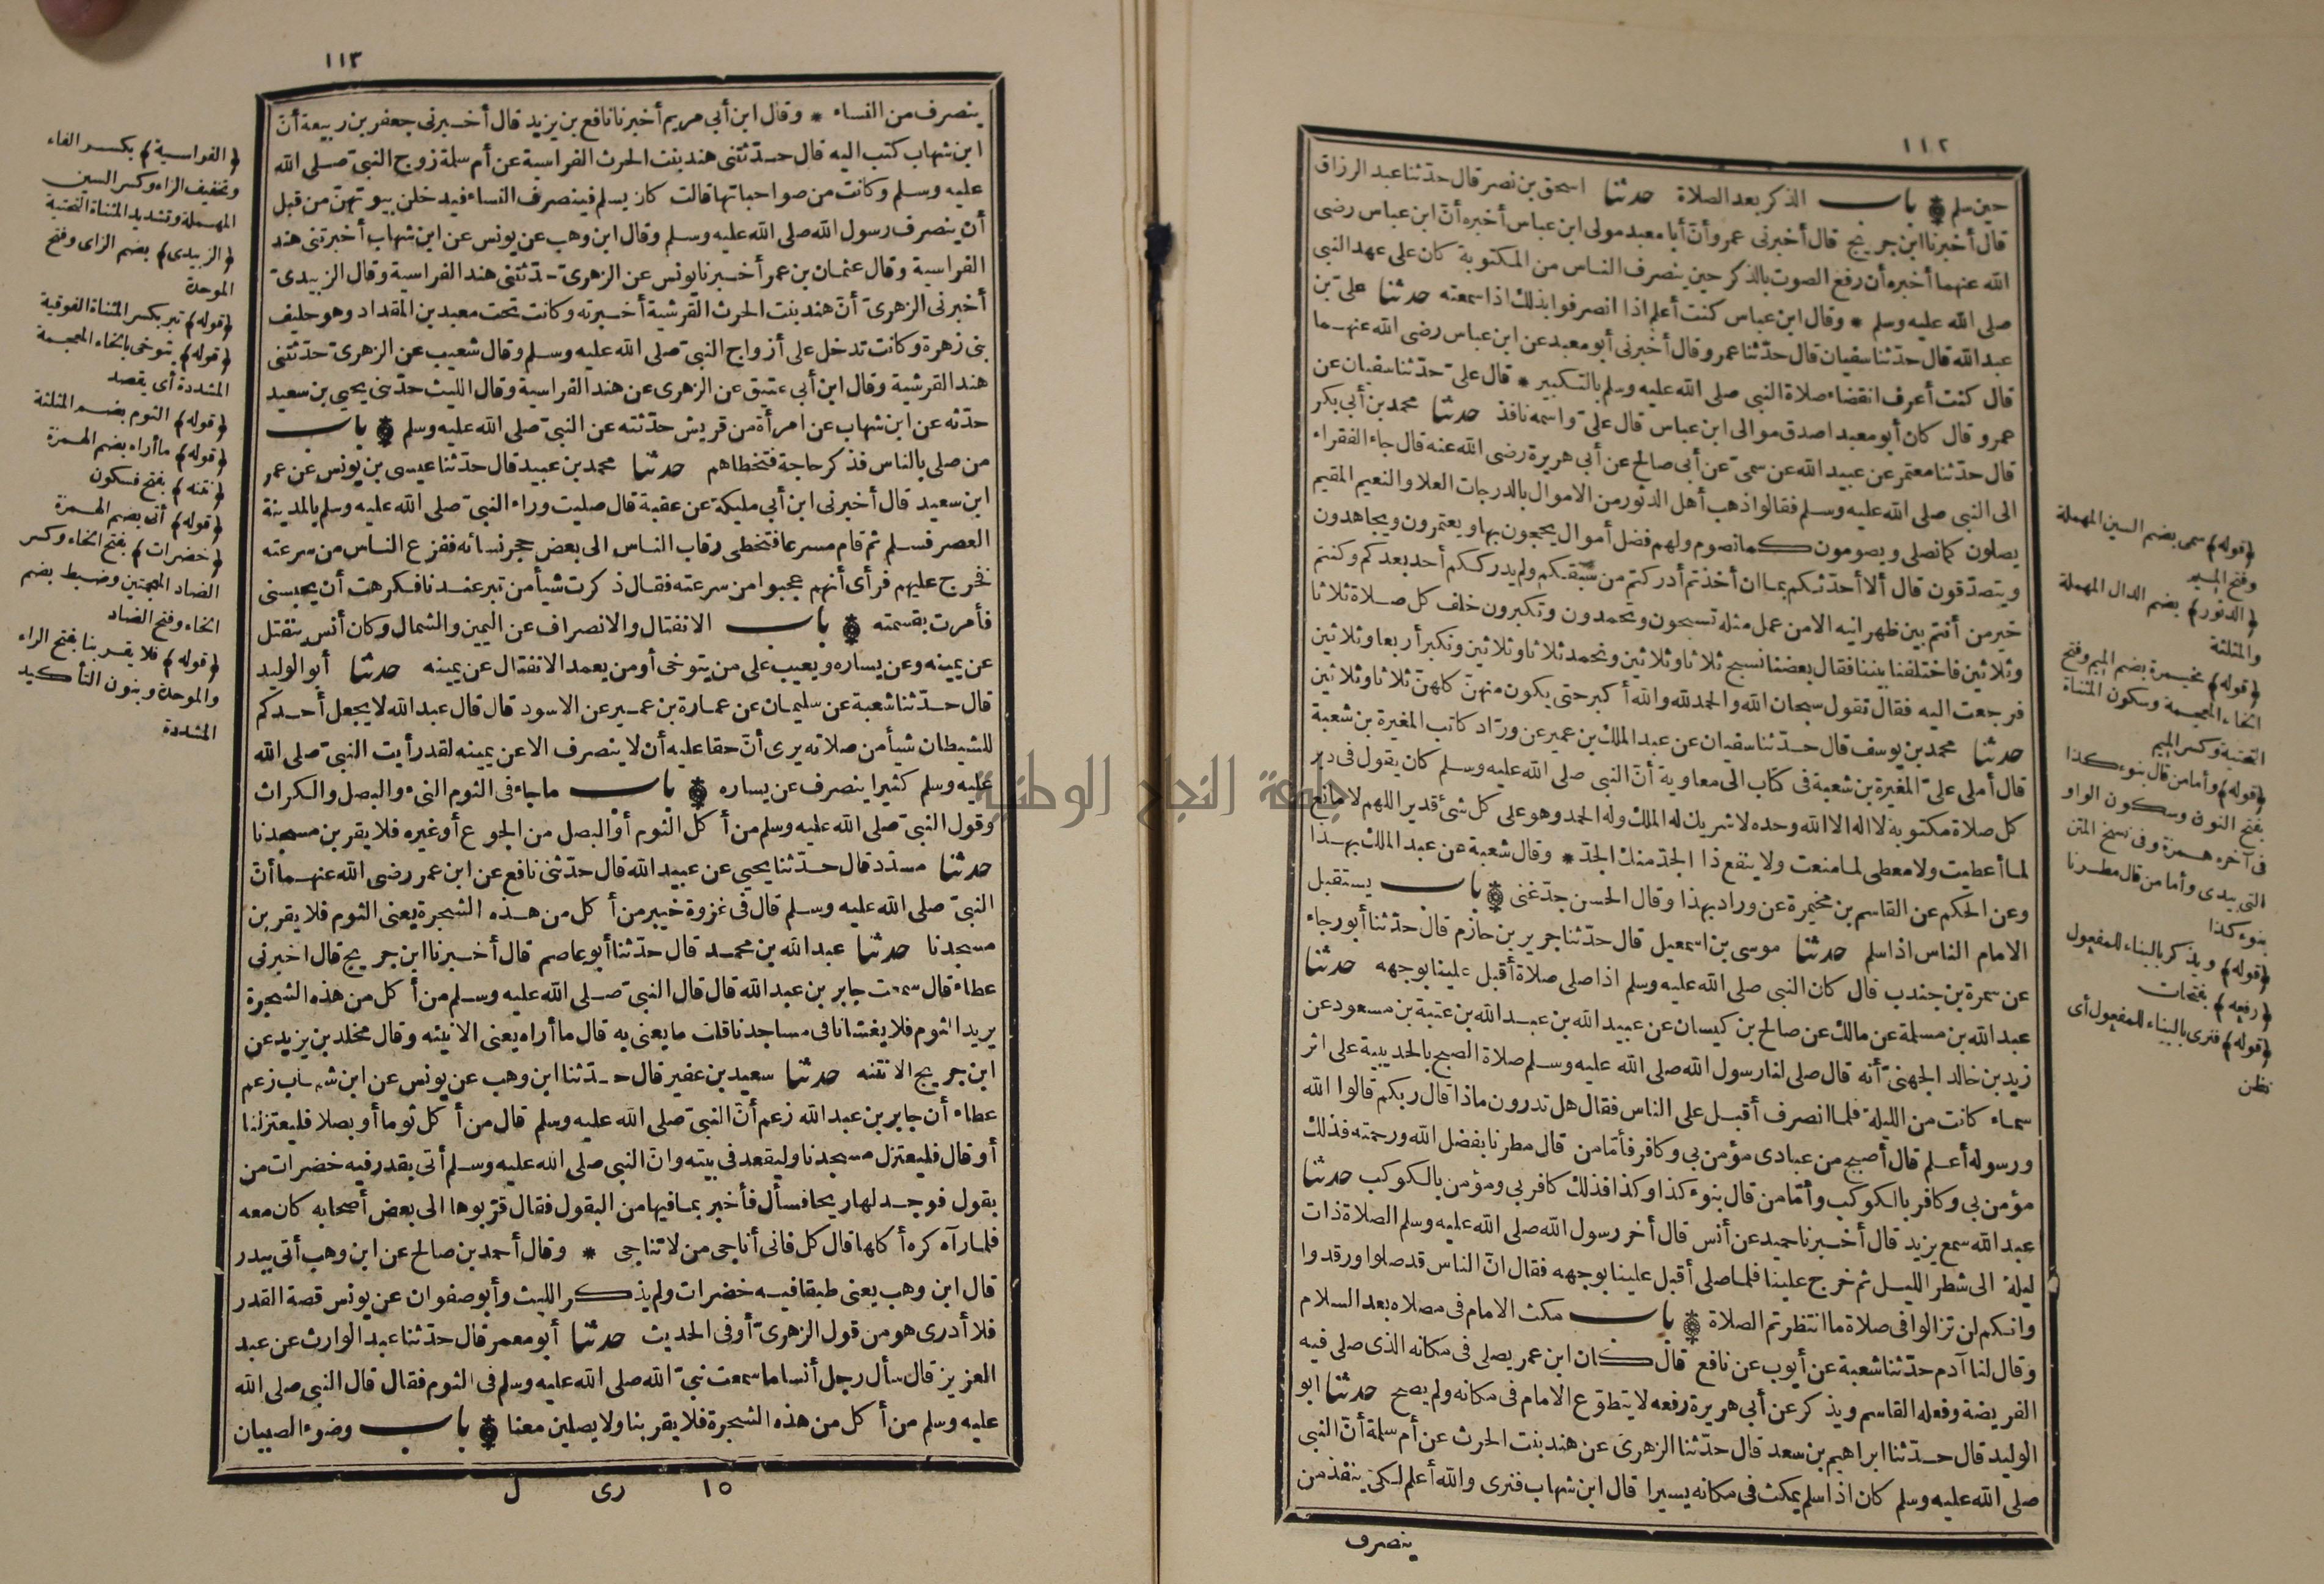 ١١٢
حين سلم باب الذكر بعد الصلاة حدثنا اسحق بن نصر قال حدّثنا عبد الرزاق
قال أخبرنا ابن جريج قال أخبرنى عمرو أنّ أبا معبد مولى ابن عباس أخبره أنّ ابن عباس رضى
الله عنهما أخبره أن رفع الصوت بالذكر حين ينصرف الناس من المكتوبة كان على عهد النبى
صلى الله عليه وسلم * وقال ابن عباس كنت أعلم اذا انصرفوا بذلك اذا سمعته حدثنا علىّ بن
عبد الله قال حدّثنا سفيان قال حدّثنا عمرو قال أخبرنى أبو معبد عن ابن عباس رضى الله عنهما
قال كنت أعرف انقضاء صلاة النبى صلى الله عليه وسلم بالتكبير * قال علىّ حدّثنا سفيان عن
عمرو قال كان أبو معبد اصدق موالى ابن عباس قال علىّ واسمه نافذ حدثنا محمد بن أبى بكر
قال حدّثنا معتمر عن عبيد الله عن سمىّ عن أبى صالح عن أبى هريرة رضى الله عنه قال جاء الفقراء
الى النبى صلى الله عليه وسلم فقالوا ذهب أهل الدثور من الاموال بالدرجات العلا والنعيم المقيم
يصلون كما نصلى ويصومون كما نصوم ولهم فضل أموال يحجون بها ويعتمرون ويجاهدون
ويتصدّقون قال ألا أحدّثكم بما ان أخذتم أدركتم من سبقكم ولم يدرككم أحد بعدكم وكنتم
خير من أنتم بين ظهرانيه الا من عمل مثله تسبحون وتحمدون وتكبرون خلف كل صلاة ثلاثا
وثلاثين فاختلفنا بيننا فقال بعضنا نسبح ثلاثا وثلاثين ونحمد ثلاثا وثلاثين ونكبر أربعا وثلاثين
فرجعت اليه فقال تقول سبحان الله والحمد لله والله أكبر حتى يكون منهنّ كلهنّ ثلاثا وثلاثين
حدثنا محمد بن يوسف قال حدّثنا سفيان عن عبد الملك بن عمير عن ورّاد كاتب المغيرة بن شعبة
قال أملى علىّ المغيرة بن شعبة فى كتاب الى معاوية أنّ النبى صلى الله عليه وسلم كان يقول فى دبر
كل صلاة مكتوبة لا اله الا الله وحده لا شريك له الملك وله الحمد وهو على كل شئ قدير اللهم لا مانع
لما أعطيت ولا معطى لما منعت ولا ينفع ذا الجدّ منك الجدّ * وقال شعبة عن عبد الملك بهذا
وعن الحكم عن القاسم بن مخيمرة عن وراد بهذا وقال الحسن جدّ غنى باب يستقبل
الامام الناس اذا سلم حدثنا موسى بن اسمعيل قال حدّثنا جرير بن حازم قال حدّثنا أبو رجاء
عن سمرة بن جندب قال كان النبى صلى الله عليه وسلم اذا صلى صلاة أقبل علينا بوجهه حدثنا
عبد الله بن مسلمة عن مالك عن صالح بن كيسان عن عبيد الله بن عبد الله بن عتبة بن مسعود عن
زيد بن خالد الجهنىّ أنه قال صلى لنا رسول الله صلى الله عليه وسلم صلاة الصبح بالحديبية على اثر
سماء كانت من الليلة فلما انصرف أقبل على الناس فقال هل تدرون ماذا قال ربكم قالوا الله
ورسوله أعلم قال أصبح من عبادى مؤمن بى وكافر فأمّا من قال مطرنا بفضل الله ورحمته فذلك
مؤمن بى وكافر بالكوكب وأمّا من قال بنوء كذا وكذا فذلك كافر بى ومؤمن بالكوكب حدثنا
عبد الله سمع يزيد قال أخبرنا حميد عن أنس قال أخر رسول الله صلى الله عليه وسلم الصلاة ذات
ليلة الى شطر الليل ثم خرج علينا فلما صلى أقبل علينا بوجهه فقال انّ الناس قد صلوا ورقدوا
وانكم لن تزالوا فى صلاة ما انتظرتم الصلاة باب مكث الامام فى مصلاه بعد السلام
وقال لنا آدم حدّثنا شعبة عن أيوب عن نافع قال كان ابن عمر يصلى فى مكانه الذى صلى فيه
الفريضة وفعله القاسم ويذكر عن أبى هريرة رفعه لا يتطوّع الامام فى مكانه ولم يصح حدثنا ابو
الوليد قال حدّثنا ابراهيم بن سعد قال حدّثنا الزهرى عن هند بنت الحرث عن أم سلمة أنّ النبى
صلى الله عليه وسلم كان اذا سلم يمكث فى مكانه يسيرا قال ابن شهاب فنرى والله أعلم لكى ينفذ من
ينصرف
(قوله) سمى بضم السين المهملة
وفتح الميم
(الدثور) بضم الدال المهملة
والمثلثة
(قوله) مخيمرة بضم الميم وفتح
الخاء المعجمة وسكون المثناة
التحتية وكسر الميم
(قوله) وأما من قال بنوء كذا
بفتح النون وسكون الواو
فى آخره همزة وفى نسخ المتن
التى بيدى وأما من قال مطرنا
بنوء كذا
(قوله) ويذكر بالبناء للمفعول
(رفعه) بفتحات
(قوله) فنرى بالبناء للمفعول أى
نظن
١١٣
ينصرف من النساء * وقال ابن أبى مريم أخبرنا نافع بن يزيد قال أخبرنى جعفر بن ربيعة أنّ
ابن شهاب كتب اليه قال حدّثتنى هند بنت الحرث الفراسية عن أم سلمة زوج النبىّ صلى الله
عليه وسلم وكانت من صواحباتها قالت كان يسلم فينصرف النساء فيدخلن بيوتهنّ من قبل
أن ينصرف رسول الله صلى الله عليه وسلم وقال ابن وهب عن يونس عن ابن شهاب أخبرتنى هند
الفراسية وقال عثمان بن عمر أخبرنا يونس عن الزهرىّ حدّثتنى هند الفراسية وقال الزبيدىّ
أخبرنى الزهرىّ أنّ هند بنت الحرث القرشية أخبرته وكانت تحت معبد بن المقداد وهو حليف
بنى زهرة وكانت تدخل على أزواج النبىّ صلى الله عليه وسلم وقال شعيب عن الزهرىّ حدّثتنى
هند القرشية وقال ابن أبى عتيق عن الزهرى عن هند الفراسية وقال الليث حدّثنى يحيى بن سعيد
حدّثه عن ابن شهاب عن امرأة من قريش حدّثته عن النبىّ صلى الله عليه وسلم باب
من صلى بالناس فذكر حاجة فتخطاهم حدثنا محمد بن عبيد قال حدّثنا عيسى بن يونس عن عمر
ابن سعيد قال أخبرنى ابن أبى مليكة عن عقبة قال صليت وراء النبىّ صلى الله عليه وسلم بالمدينة
العصر فسلم ثم قام مسرعا فتخطى رقاب الناس الى بعض حجر نسائه ففزع الناس من سرعته
فخرج عليهم فرأى أنهم عجبوا من سرعته فقال ذكرت شيأ من تبر عندنا فكرهت أن يحبسنى
فأمرت بقسمته باب الانفتال والانصراف عن اليمين والشمال وكان أنس ينفتل
عن يمينه وعن يساره ويعيب على من يتوخى أو من يعمد الانفتال عن يمينه حدثنا أبو الوليد
قال حدّثنا شعبة عن سليمان عن عمارة بن عمير عن الاسود قال قال عبد الله لا يجعل أحدكم
للشيطان شيأ من صلاته يرى أنّ حقا عليه أن لا ينصرف الا عن يمينه لقد رأيت النبىّ صلى الله
عليه وسلم كثيرا ينصرف عن يساره باب ما جاء فى الثوم النىء والبصل والكراث
وقول النبىّ صلى الله عليه وسلم من أكل الثوم أو البصل من الجوع أو غيره فلا يقربن مسجدنا
حدثنا مسدّد قال حدّثنا يحيى عن عبيد الله قال حدّثنى نافع عن ابن عمر رضى الله عنهما أنّ
النبىّ صلى الله عليه وسلم قال فى غزوة خيبر من أكل من هذه الشجرة يعنى الثوم فلا يقربن
مسجدنا حدثنا عبد الله بن محمد قال حدّثنا أبو عاصم قال أخبرنا ابن جريج قال اخبرنى
عطاء قال سمعت جابر بن عبد الله قال قال النبىّ صلى الله عليه وسلم من أكل من هذه الشجرة
يريد الثوم فلا يغشانا فى مساجدنا قلت ما يعنى به قال ما أراه يعنى الا نيئه وقال مخلد بن يزيد عن
ابن جريج الا نتنه حدثنا سعيد بن عفير قال حدّثنا ابن وهب عن يونس عن ابن شهاب زعم
عطاء أن جابر بن عبد الله زعم أنّ النبىّ صلى الله عليه وسلم قال من أكل ثوما أو بصلا فليعتزلنا
أو قال فليعتزل مسجدنا وليقعد فى بيته وانّ النبى صلى الله عليه وسلم أتى بقدر فيه خضرات من
بقول فوجد لها ريحا فسأل فأخبر بما فيها من البقول فقال قرّبوها الى بعض أصحابه كان معه
فلما رآه كره أكلها قال كل فانى أناجى من لا تناجى * وقال أحمد بن صالح عن ابن وهب أتى ببدر
قال ابن وهب يعنى طبقا فيه خضرات ولم يذكر الليث وأبو صفوان عن يونس قصة القدر
فلا أدرى هو من قول الزهرىّ أو فى الحديث حدثنا أبو معمر قال حدّثنا عبد الوارث عن عبد
العزيز قال سأل رجل أنسا ما سمعت نبىّ الله صلى الله عليه وسلم فى الثوم فقال قال النبى صلى الله
عليه وسلم من أكل من هذه الشجرة فلا يقربنا ولا يصلين معنا باب وضوء الصبيان
١٥ رى ل
(الفراسية) بكسر الفاء
وتخفيف الراء وكسر السين
المهملة وتشديد المثناة التحتية
(الزبيدى) بضم الزاى وفتح
الموحدة
(قوله) تبر بكسر المثناة الفوقية
(قوله) يتوخى بالخاء المعجمة
المشددة أى يقصد
(قوله) الثوم بضم المثلثة
(قوله) ما أراه بضم الهمزة
(نتنه) بفتح فسكون
(قوله) أتى بضم الهمزة
(خضرات) بفتح الخاء وكسر
الضاد المعجمتين وضبط بضم
الخاء وفتح الضاد
(قوله) فلا يقربنا بفتح الراء
والموحدة وبنون التأكيد
المشددة
جامعة النجاح الوطنية